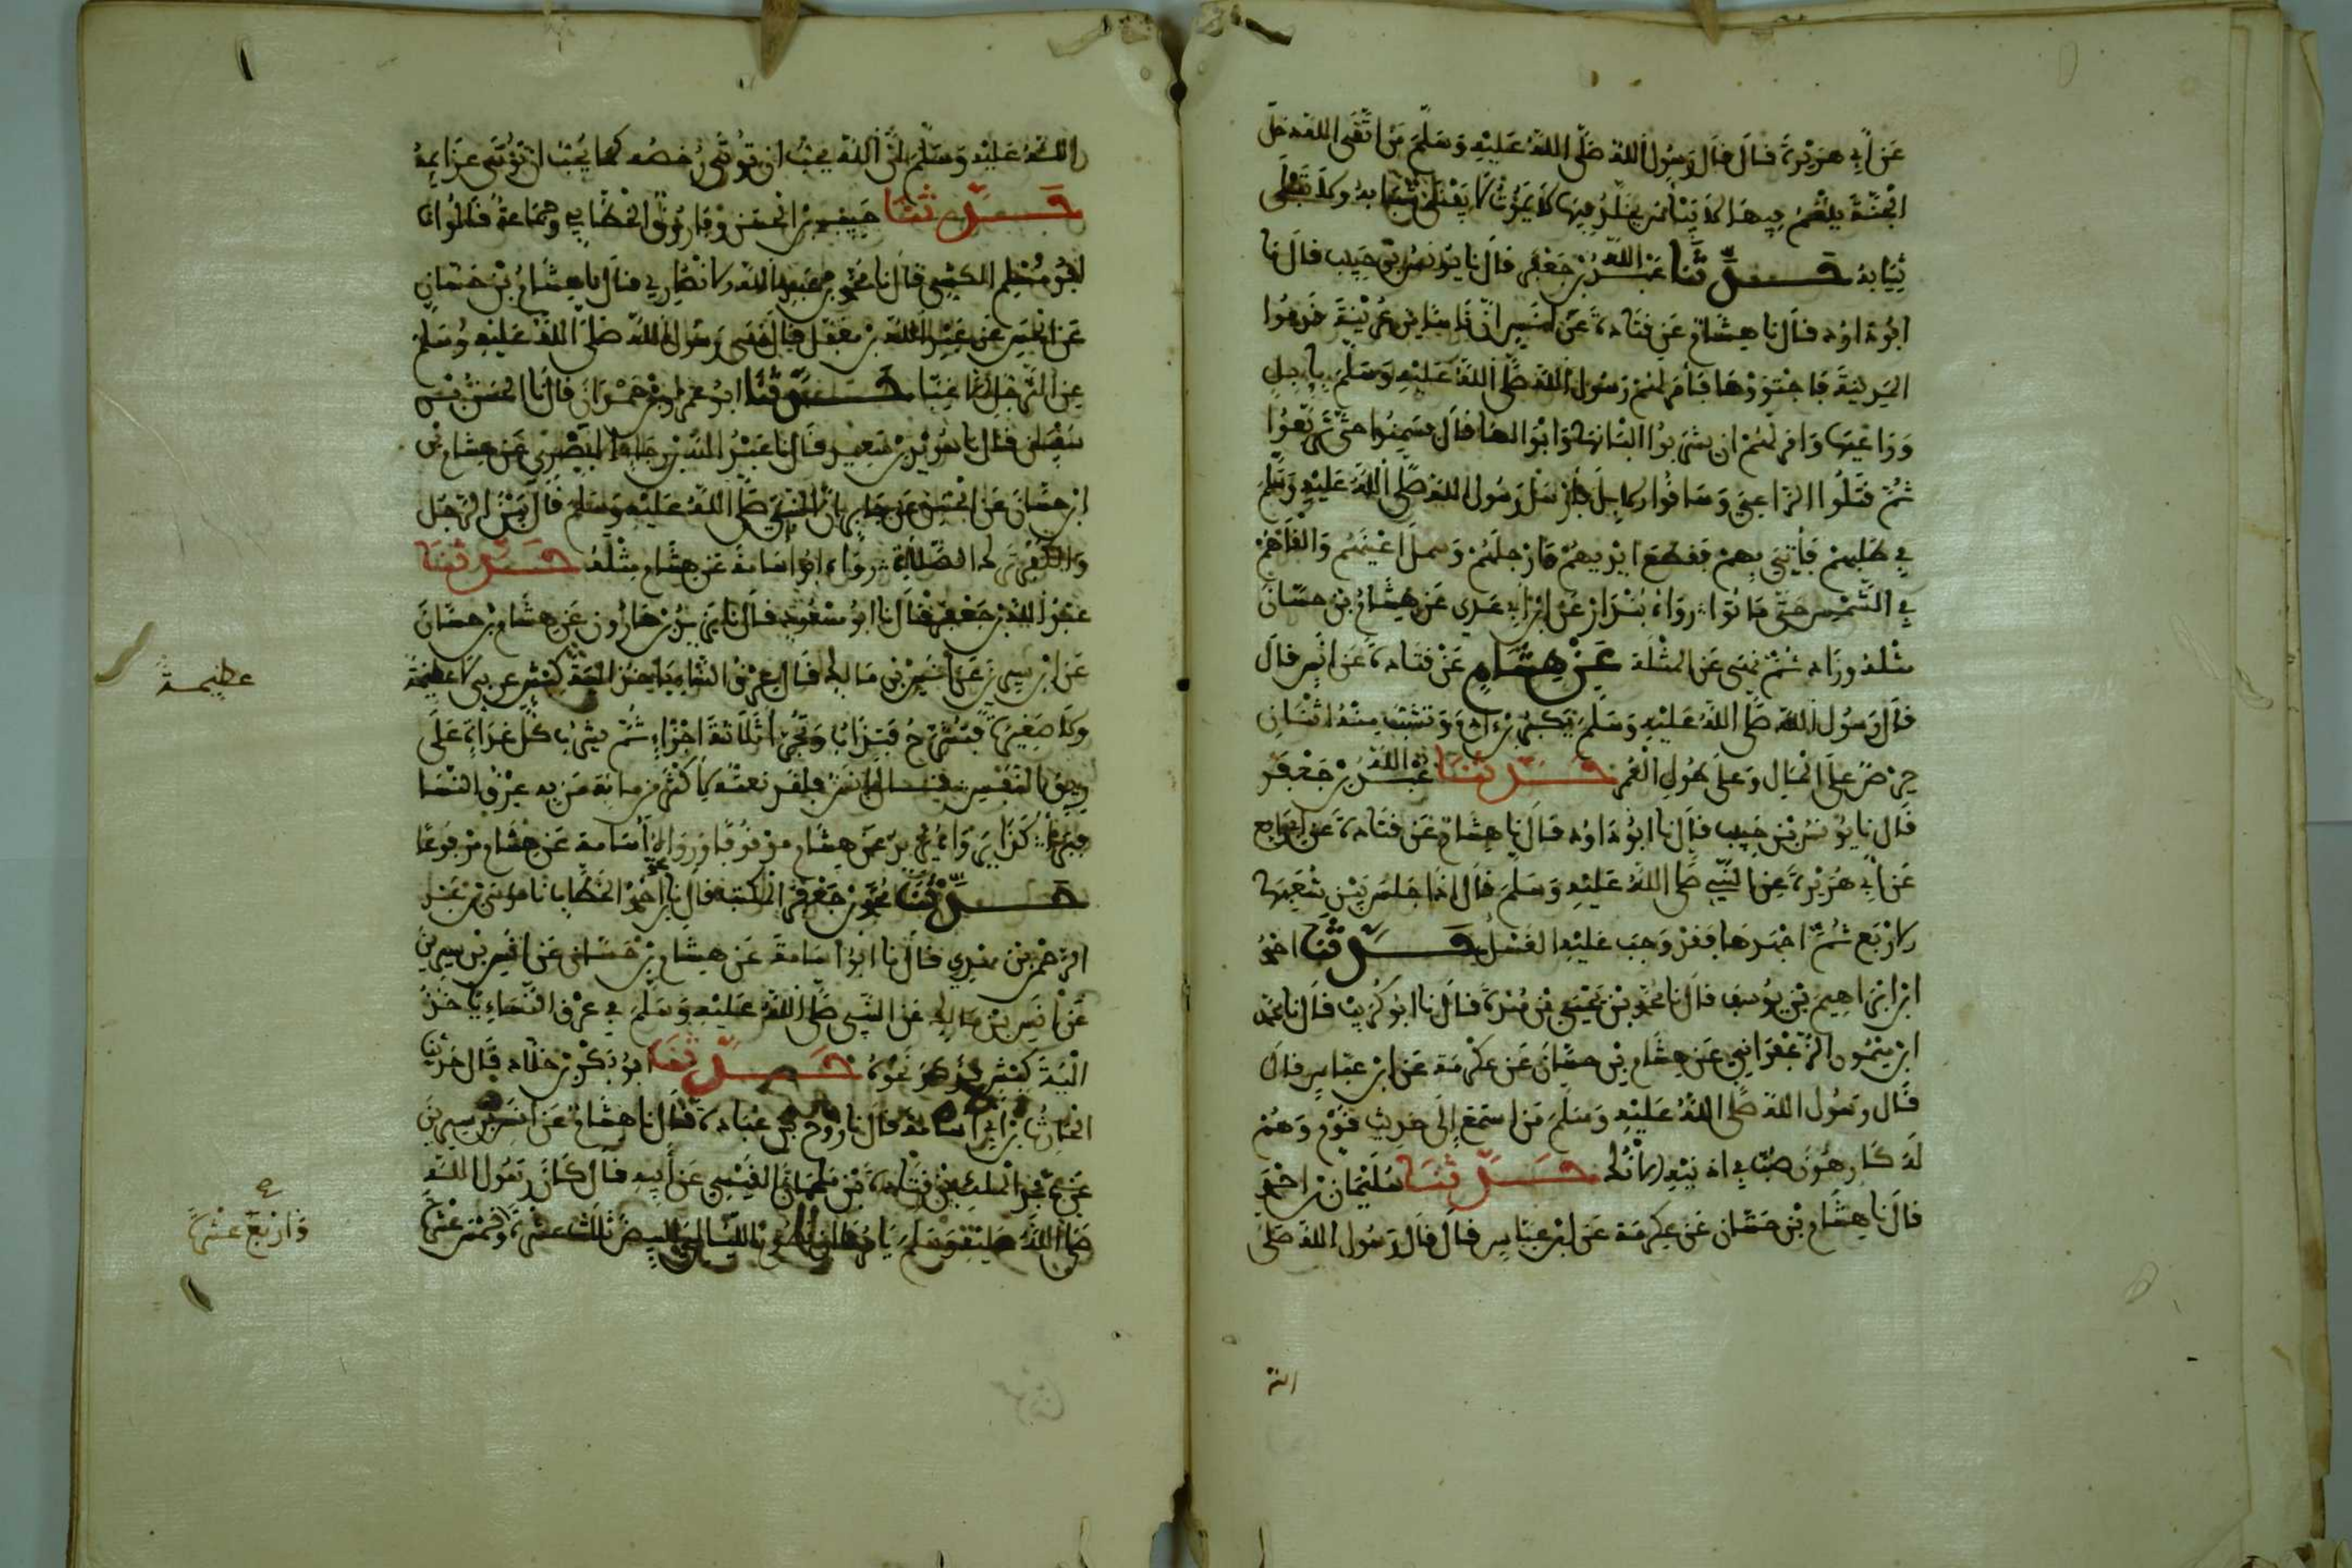 عَنْ أَبِي هُرَيْرَةَ قَالَ قَالَ رَسُولُ اللهِ صَلَّى اللهُ عَلَيْهِ وَسَلَّمَ مَنِ اتَّقَى اللهَ دَخَلَ
الْجَنَّةَ يَنْعَمُ فِيهَا لَا يَبْأَسُ يَخْلُدُ فِيهَا لَا يَمُوتُ لَا يَفْنَى شَبَابُهُ وَلَا تَبْلَى
ثِيَابُهُ حَدَّثَنَا عَبْدُ اللهِ بْنُ جَعْفَرٍ قَالَ نَا يُونُسُ بْنُ حَبِيبٍ قَالَ نَا
أَبُو دَاوُدَ قَالَ نَا هِشَامٌ عَنْ قَتَادَةَ عَنْ أَنَسٍ أَنَّ نَاسًا مِنْ عُرَيْنَةَ قَدِمُوا
الْمَدِينَةَ فَاجْتَوَوْهَا فَأَمَرَ لَهُمْ رَسُولُ اللهِ صَلَّى اللهُ عَلَيْهِ وَسَلَّمَ بِإِبِلٍ
وَرَاعِيهَا وَأَمَرَهُمْ أَنْ يَشْرَبُوا أَلْبَانَهَا وَأَبْوَالَهَا قَالَ فَسَمِنُوا حَتَّى
ثُمَّ قَتَلُوا الرَّاعِيَ وَسَاقُوا الْإِبِلَ فَأَرْسَلَ رَسُولُ اللهِ صَلَّى اللهُ عَلَيْهِ وَسَلَّمَ
فِي طَلَبِهِمْ فَأُتِيَ بِهِمْ فَقَطَعَ أَيْدِيَهُمْ وَأَرْجُلَهُمْ وَسَمَلَ أَعْيُنَهُمْ وَأَلْقَاهُمْ
فِي الشَّمْسِ حَتَّى مَاتُوا رَوَاهُ بُنْدَارٌ عَنِ ابْنِ أَبِي عَدِيٍّ عَنْ هِشَامِ بْنِ حَسَّانَ
مِثْلَهُ وَزَادَ ثُمَّ نَهَى عَنِ الْمُثْلَةِ عَنْ هِشَامٍ عَنْ قَتَادَةَ عَنْ أَنَسٍ قَالَ
قَالَ رَسُولُ اللهِ صَلَّى اللهُ عَلَيْهِ وَسَلَّمَ يَكْبُرُ ابْنُ آدَمَ وَتَشِبُّ مِنْهُ اثْنَتَانِ
حِرْصٌ عَلَى الْمَالِ وَعَلَى طُولِ الْعُمُرِ حَدَّثَنَا عَبْدُ اللهِ بْنُ جَعْفَرٍ
قَالَ نَا يُونُسُ بْنُ حَبِيبٍ قَالَ نَا أَبُو دَاوُدَ قَالَ نَا هِشَامٌ عَنْ قَتَادَةَ عَنْ أَبِي رَافِعٍ
عَنْ أَبِي هُرَيْرَةَ عَنِ النَّبِيِّ صَلَّى اللهُ عَلَيْهِ وَسَلَّمَ قَالَ إِذَا جَلَسَ بَيْنَ شُعَبِهَا
الْأَرْبَعِ ثُمَّ اجْتَهَدَ فَقَدْ وَجَبَ عَلَيْهِ الْغُسْلُ حَدَّثَنَا أَحْمَدُ
ابْنُ إِبْرَاهِيمَ بْنِ يُوسُفَ قَالَ نَا مُحَمَّدُ بْنُ يَحْيَى بْنِ مَنْدَةَ قَالَ نَا أَبُو كُرَيْبٍ قَالَ نَا مُحَمَّدُ
ابْنُ مَيْمُونٍ الزَّعْفَرَانِيُّ عَنْ هِشَامِ بْنِ حَسَّانَ عَنْ عِكْرِمَةَ عَنِ ابْنِ عَبَّاسٍ قَالَ
قَالَ رَسُولُ اللهِ صَلَّى اللهُ عَلَيْهِ وَسَلَّمَ مَنِ اسْتَمَعَ إِلَى حَدِيثِ قَوْمٍ وَهُمْ
لَهُ كَارِهُونَ صُبَّ فِي أُذُنَيْهِ الْآنُكُ حَدَّثَنَا سُلَيْمَانُ بْنُ أَحْمَدَ
قَالَ نَا هِشَامُ بْنُ حَسَّانَ عَنْ عِكْرِمَةَ عَنِ ابْنِ عَبَّاسٍ قَالَ قَالَ رَسُولُ اللهِ صَلَّى
الله
اللهُ عَلَيْهِ وَسَلَّمَ إِنَّ اللهَ يُحِبُّ أَنْ تُؤْتَى رُخَصُهُ كَمَا يُحِبُّ أَنْ تُؤْتَى عَزَائِمُهُ
حَدَّثَنَا حَبِيبُ بْنُ الْحَسَنِ وَفَارُوقٌ الْخَطَّابِيُّ وَجَمَاعَةٌ قَالُوا نَا
أَبُو مُسْلِمٍ الْكَشِّيُّ قَالَ نَا مُحَمَّدُ بْنُ عَبْدِ اللهِ الْأَنْصَارِيُّ قَالَ نَا هِشَامُ بْنُ حَسَّانَ
عَنِ الْحَسَنِ عَنْ عَبْدِ اللهِ بْنِ مُغَفَّلٍ قَالَ نَهَى رَسُولُ اللهِ صَلَّى اللهُ عَلَيْهِ وَسَلَّمَ
عَنِ التَّرَجُّلِ إِلَّا غِبًّا حَدَّثَنَا أَبُو عَمْرِو بْنُ حَمْدَانَ قَالَ نَا الْحَسَنُ بْنُ
سُفْيَانَ قَالَ نَا سُوَيْدُ بْنُ سَعِيدٍ قَالَ نَا عَبْدُ اللهِ بْنُ رَجَاءٍ الْبَصْرِيُّ عَنْ هِشَامِ بْنِ
ابْنِ حَسَّانَ عَنِ الْحَسَنِ عَنْ جَابِرٍ أَنَّ النَّبِيَّ صَلَّى اللهُ عَلَيْهِ وَسَلَّمَ قَالَ بَيْنَ الرَّجُلِ
وَالْكُفْرِ تَرْكُ الصَّلَاةِ رَوَاهُ أَبُو أُسَامَةَ عَنْ هِشَامٍ مِثْلَهُ حَدَّثَنَا
عَبْدُ اللهِ بْنُ جَعْفَرٍ قَالَ نَا أَبُو مَسْعُودٍ قَالَ نَا يَزِيدُ بْنُ هَارُونَ عَنْ هِشَامِ بْنِ حَسَّانَ
عَنِ ابْنِ سِيرِينَ عَنْ أَنَسِ بْنِ مَالِكٍ قَالَ عِرْقِ النَّسَا كَبْشٍ عَرَبِيٍّ لَا عَظِيمَةً
عظيمة
وَلَا صَغِيرَةً فَتُشَرَّحُ فَتُذَابُ وَتُجَزَّأُ ثَلَاثَةَ أَجْزَاءٍ ثُمَّ يَشْرَبُ كُلَّ غَدَاةٍ عَلَى
رِيقِ النَّفَسِ قَالَ أَنَسٌ فَلَقَدْ نَعَتُّهُ لِأَكْثَرَ مِنْ مِائَةٍ مِمَّنْ بِهِ عِرْقُ النَّسَا
كَذَا يَزِيدُ عَنْ هِشَامٍ مَوْقُوفًا وَرَوَاهُ أَبُو أُسَامَةَ عَنْ هِشَامٍ مَرْفُوعًا
حَدَّثَنَا مُحَمَّدُ بْنُ جَعْفَرٍ قَالَ نَا نَا مُوسَى بْنُ عَبْدِ
الرَّحْمَنِ بْنِ مَهْدِيٍّ قَالَ نَا أَبُو أُسَامَةَ عَنْ هِشَامِ بْنِ حَسَّانَ عَنْ أَنَسِ بْنِ سِيرِينَ
عَنْ أَنَسِ بْنِ مَالِكٍ عَنِ النَّبِيِّ صَلَّى اللهُ عَلَيْهِ وَسَلَّمَ فِي عِرْقِ النِّسَاءِ يَأْخُذُ
أَلْيَةَ كَبْشٍ فَذَكَرَ نَحْوَهُ حَدَّثَنَا أَبُو بَكْرِ بْنُ خَلَّادٍ قَالَ حَدَّثَنَا
الْحَارِثُ بْنُ أَبِي أُسَامَةَ قَالَ نَا رَوْحُ بْنُ عُبَادَةَ قَالَ نَا هِشَامٌ عَنْ أَنَسِ بْنِ سِيرِينَ
عَنْ عَبْدِ الْمَلِكِ بْنِ قَتَادَةَ بْنِ مَلْحَانَ الْقَيْسِيِّ عَنْ أَبِيهِ قَالَ كَانَ رَسُولُ اللهِ
صَلَّى اللهُ عَلَيْهِ وَسَلَّمَ يَأْمُرُنَا اللَّيَالِي الْبِيضَ ثَلَاثَ عَشْرَةَ وَخَمْسَ عَشْرَةَ
وَأَرْبَعَ عَشْرَةَ